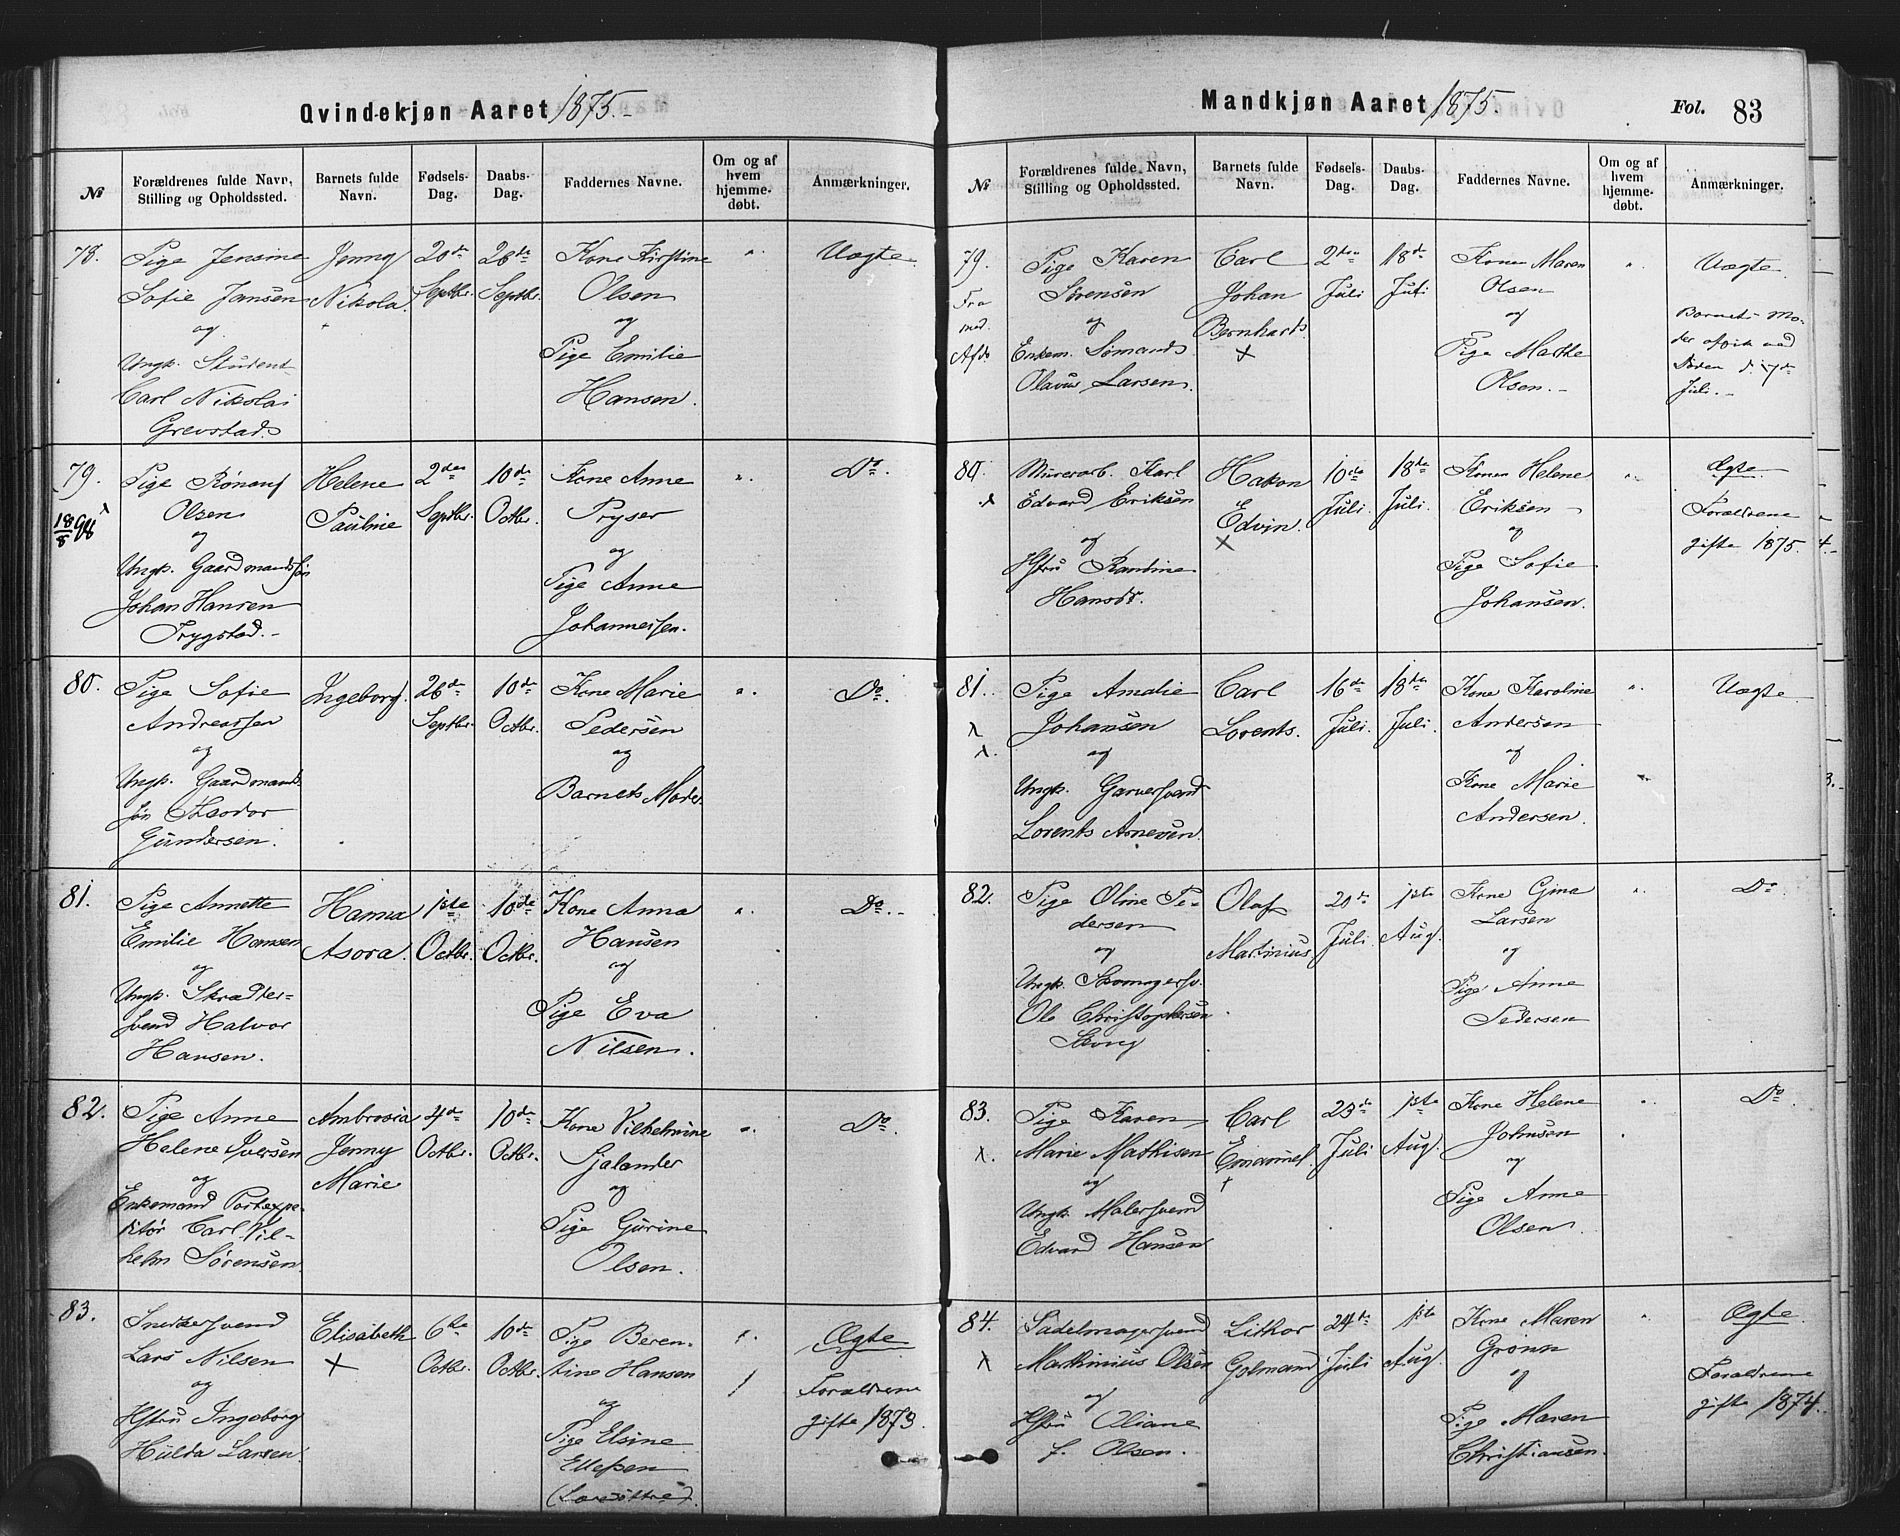 Qvindekjøn Aaret 1875.-
№
Forældrenes fulde Navn,
Stilling og Opholdssted.
Barnets fulde
Navn.
Fødsels-
Dag.
Daabs-
Dag.
Faddernes Navne.
Om og af
hvem
hjemme-
døbt.
Anmærkninger.
78.
Pige Jensine
Sofie Jansen
og
Ungk. Student
Carl Nikolai
Grevstad
Jenny
Nikola.
20de
Septbr.
26de
Septbr.
Kone Kirstine
Olsen
og
Pige Emilie
Hansen.
"
Uægte.
79.
18/8 98
Pige Rønauf
Olsen
og
Ungk. Gaardmandssøn
Johan Hansen
Frygstad.-
Helene
Pauline
2den
Septbr.
10de
Octbr.
Kone Anne
Pryser
og
Pige Anne
Johannessen.
"
Do.
80.
Pige Sofie
Andreassen
og
Ungk. Gaardmands-
søn Theodor
Gundersen.
Ingeborg.
26de
Septbr.
10de
Octbr.
Kone Marie
Pedersen
og
Barnets Moder.
"
Do.
81.
Pige Annette
Emilie Hansen
og
Ungk. Skrædder-
svend Halvor
Hansen.
Hanna
Asora.
1ste
Octbr.
10de
Octbr.
Kone Anna
Hansen
og
Pige Eva
Nilsen.
"
Do.-
82.
Pige Anne
Helene Iversen
og
Enkemand Postexpe-
ditör Carl Vil-
helm Sørensen.
Ambrosia
Jenny
Marie
4de
Octbr.
10de
Octbr.
Kone Vilhelmine
Sjalander
og
Pige Gurine
Olsen.
"
Do.
83.
Snedkersvend
Lars Nilsen
og
Hstru Ingeborg
Hulda Larsen.
Elisabeth
6te
Octbr.
10de
Octbr.
Pige Beren-
tine Hansen
og
Pige Elsine
Ellefsen
"
Ægte
Forældrene
gifte 1873.
Mandkjøn Aaret 1875.
Fol. 83
№
Forældrenes fulde Navn,
Stilling og Opholdssted.
Barnets fulde
Navn.
Fødsels-
Dag.
Daabs-
Dag.
Faddernes Navne.
Om og af
hvem
hjemme-
døbt.
Anmærkninger.
79.
Fra
med.
Afds
Pige Karen
Sörensen
og
Enkem. Sömand
Olavus Larsen.
Carl
Johan
Bernhard.
2den
Juli
18de
Juli
Konen Maren
Olsen
og
Pige Marthe
Olsen.-
"
Uægte.
Barnets Mo-
der afgik ved
Døden d. 7de
Juli.-
80.
Murerarb. Karl
Edvard Eriksen
og
Hstru Rantine
Hansdr.
Hakon
Edvin.
10de
Juli.
18de
Juli.
Konen Helene
Eriksen
og
Pige Sofie
Johansen.
"
Ægte
Forældrene
gifte 1875.
81.
Pige Amalie
Johansen
og
Ungk. Garversvend
Lorents Arnesen.
Carl
Lorents.
16de
Juli.
18de
Juli.
Kone Karoline
Andersen
og
Kone Marie
Andersen.
"
Uægte
82.
Pige Oline Pe-
dersen
og
Ungk. Skomagersv.
Ole Christophersen
Skoug
Olaf
Martinius.
20de
Juli
1ste
Aug.
Kone Gina
Larsen
og
Pige Anne
Pedersen
"
Do
83.
Pige Karen
Marie Mathisen
og
Ungk. Malersvend
Edvard Hansen
Carl
Emanuel.
23de
Juli
1ste
Aug.
Kone Helene
Johnsen
og
Pige Anne
Olsen.
"
Do
84.
Sadelmagersvend
Marthinius Olsen
og
Hstru Oliane
f. Olsen.
Lithor
Golmand
24de
Juli
1ste
Aug.
Kone Maren
Grönn
og
Pige Maren
Christiansen.
"
Ægte
Forældrene
gifte 1874.